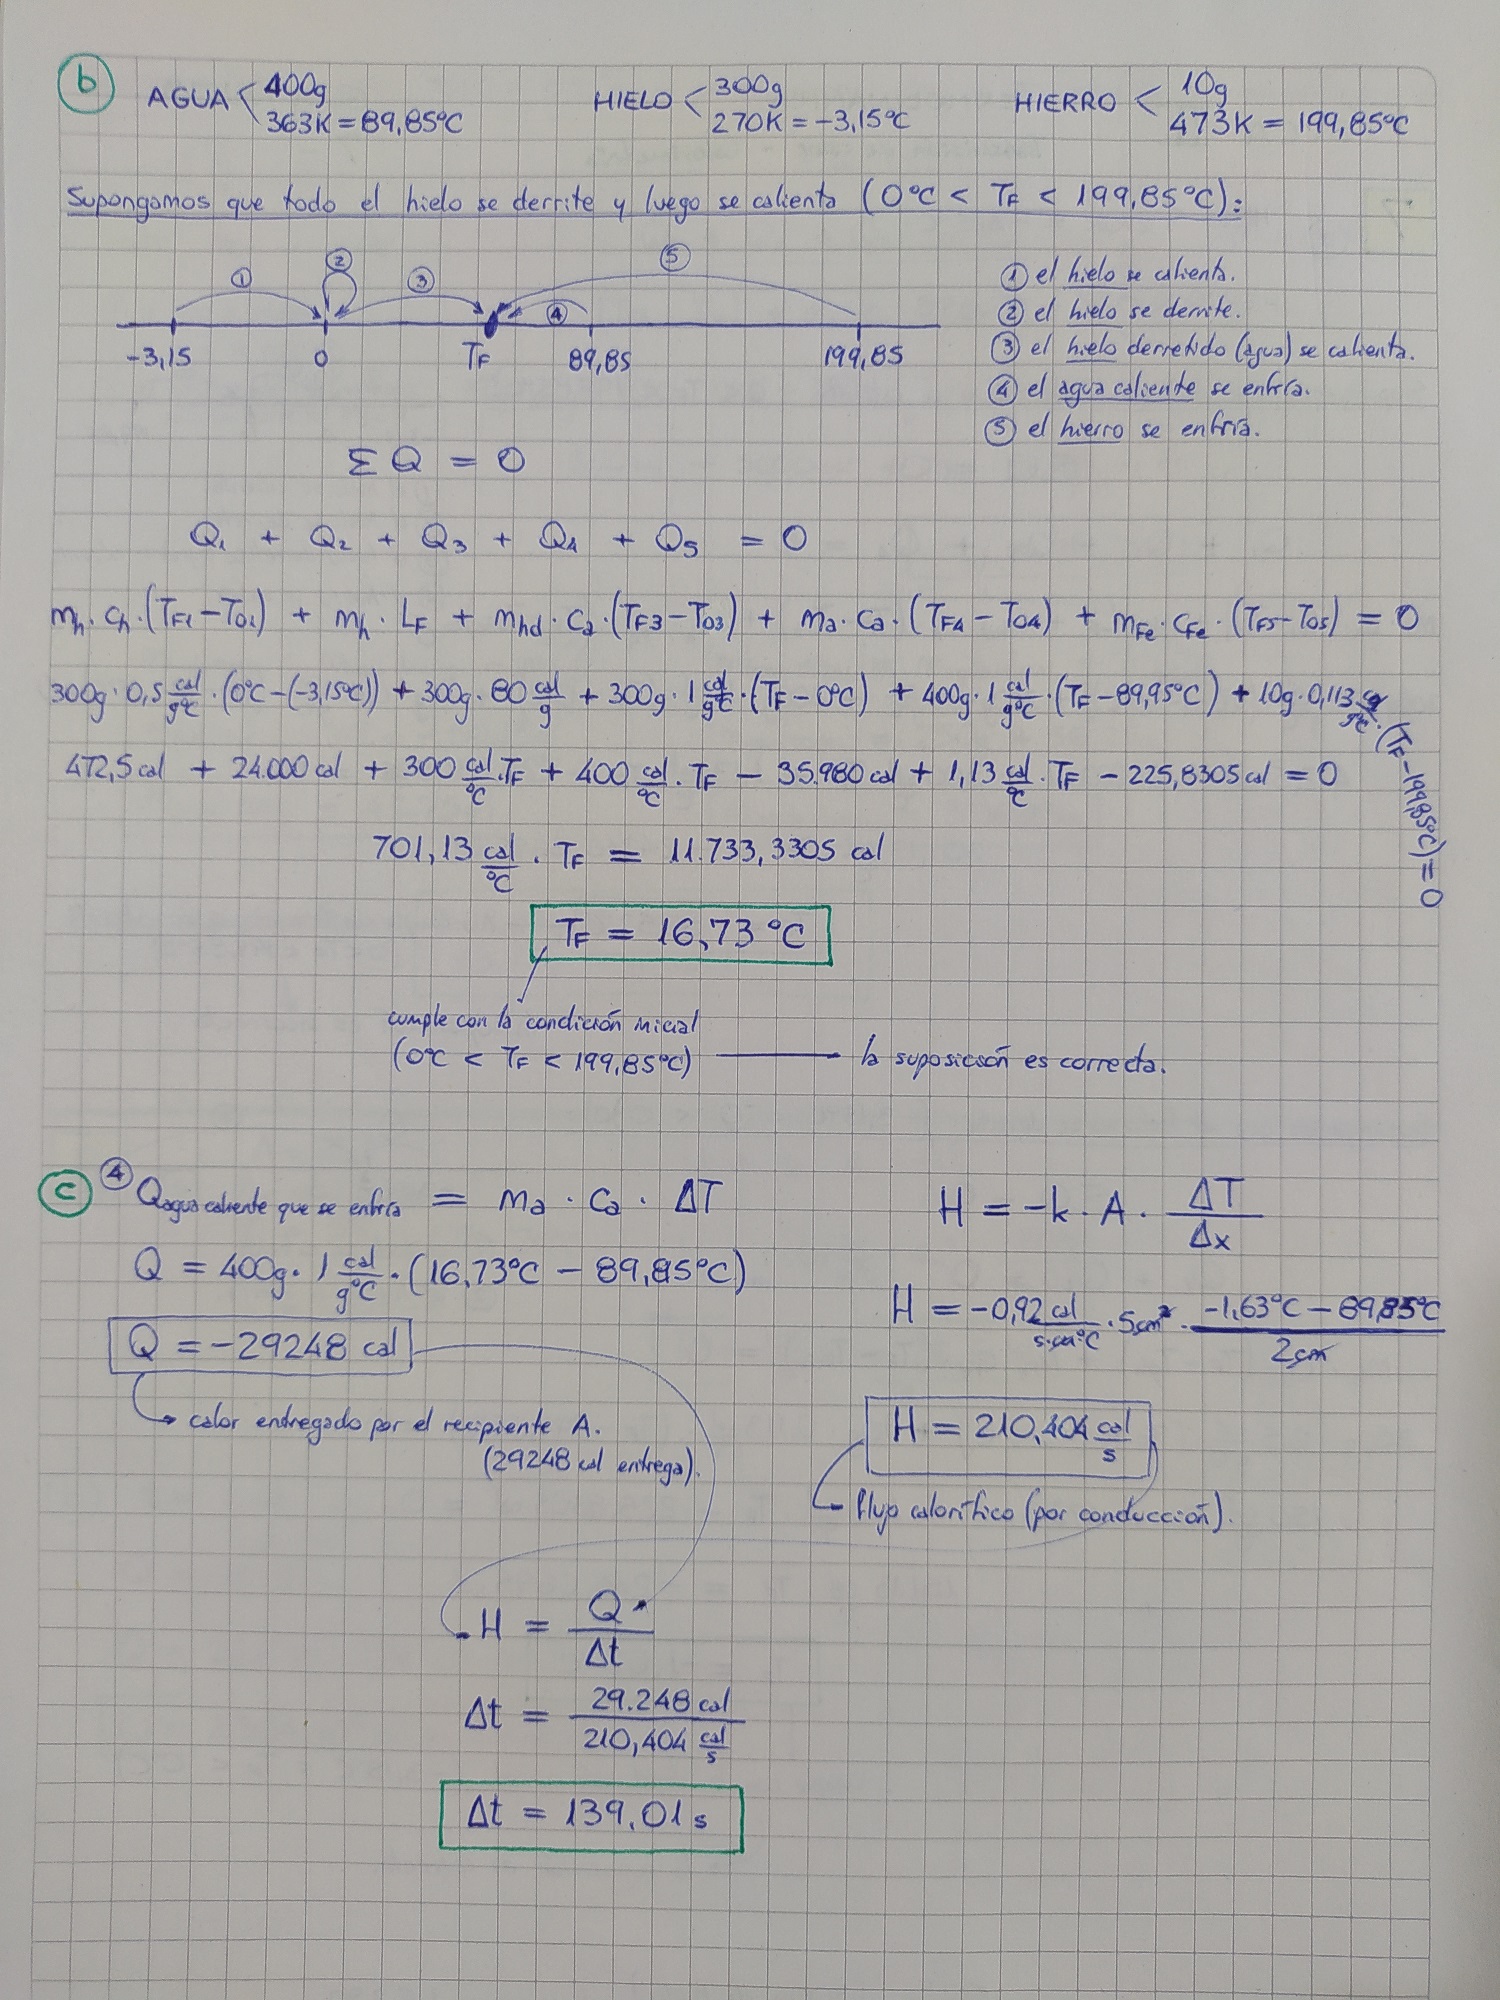 b
AGUA < 400g
363K = 89,85°C
HIELO < 300g
270K = -3,15°C
HIERRO < 10g
473K = 199,85°C
Supongamos que todo el hielo se derrite y luego se calienta (0°C < TF < 199,85°C):
① ② ③ ④ ⑤
-3,15 0 TF 89,85 199,85
① el hielo se calienta.
② el hielo se derrite.
③ el hielo derretido (agua) se calienta.
④ el agua caliente se enfría.
⑤ el hierro se enfría.
ΣQ = 0
Q1 + Q2 + Q3 + Q4 + Q5 = 0
mh · Ch · (TF1 - T01) + mh · LF + mhd · Ca · (TF3 - T03) + ma · Ca · (TF4 - T04) + mFe · CFe · (TF5 - T05) = 0
300g · 0,5 cal/g°C · (0°C - (-3,15°C)) + 300g · 80 cal/g + 300g · 1 cal/g°C · (TF - 0°C) + 400g · 1 cal/g°C · (TF - 89,95°C) + 10g · 0,113 cal/g°C · (TF - 199,85°C) = 0
472,5 cal + 24.000 cal + 300 cal/°C · TF + 400 cal/°C · TF - 35.980 cal + 1,13 cal/°C · TF - 225,8305 cal = 0
701,13 cal/°C · TF = 11.733,3305 cal
TF = 16,73 °C
cumple con la condición inicial
(0°C < TF < 199,85°C) — la suposición es correcta.
c
④ Qagua caliente que se enfría = ma · Ca · ΔT
Q = 400g · 1 cal/g°C · (16,73°C - 89,85°C)
Q = -29248 cal
calor entregado por el recipiente A.
(29248 cal entrega).
H = -k · A · ΔT/Δx
H = -0,92 cal/s·cm°C · 5cm² · -1,63°C - 89,85°C / 2cm
H = 210,404 cal/s
flujo calorífico (por conducción).
H = Q/Δt
Δt = 29.248 cal / 210,404 cal/s
Δt = 139,01 s